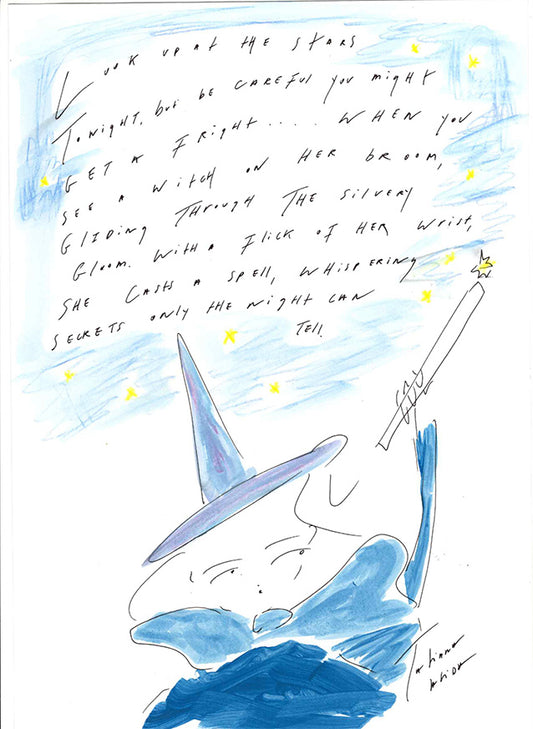 Look up at the stars
Tonight, but be careful you might
get a fright.... When you
see a witch on her broom,
gliding through the silvery
gloom. With a flick of her wrist,
she casts a spell, whispering
secrets only the night can
tell.
Tatiana